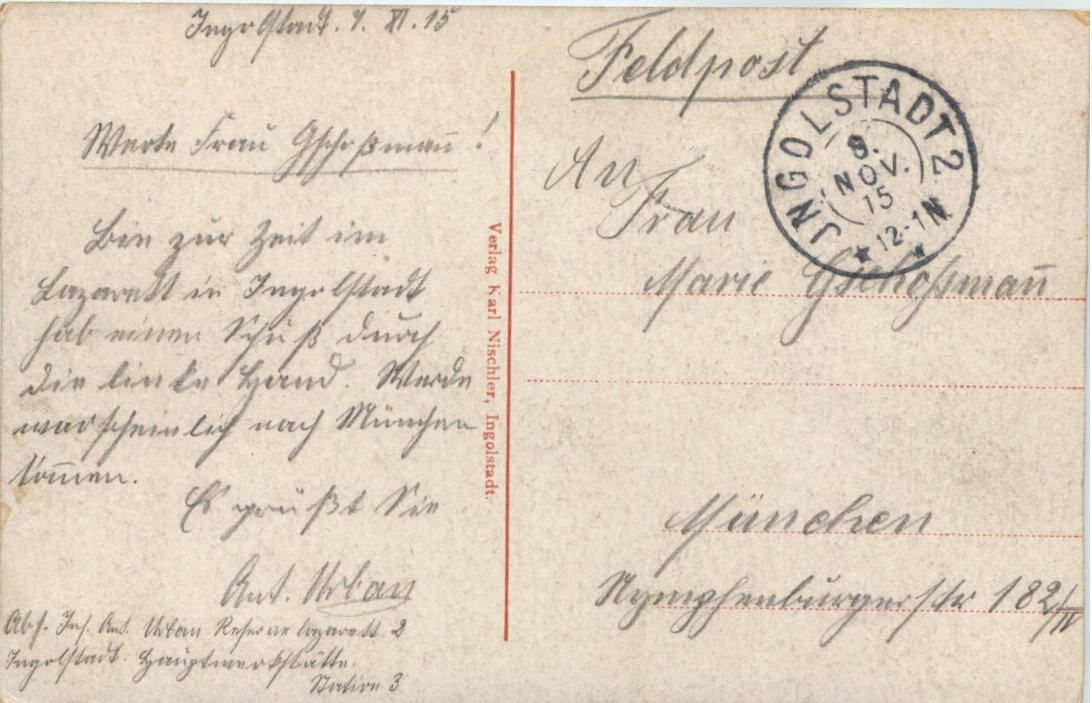 Ingolstadt. 7. XI. 15
Werte Frau Gschoßman̄!
Bin zur Zeit im
Lazarett in Ingolstadt
hab einen Schuß durch
die linke Hand. Werde
warscheinlich nach München
kom̄en.
Es grüßt Sie
Ant. Urban
Abs. Inf. Ant. Urban Reservelazarett 2
Ingolstadt. Hauptwerkstätte.
Station 3
Verlag Karl Nischler, Ingolstadt.
Feldpost
JNGOLSTADT 2
8.
NOV.
15
12-1N
An
Frau
Marie Gschoßman̄
München
Nymphenburgerstr 182/IV